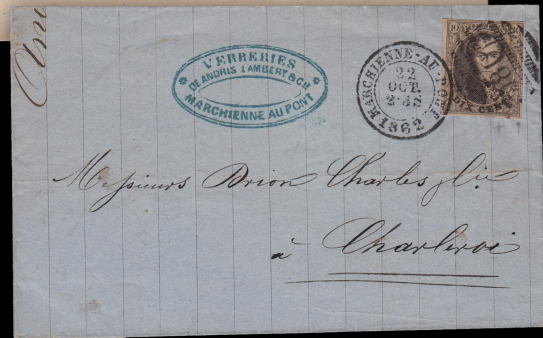 VERRERIES
DE ANDRIS LAMBERT & Cie
MARCHIENNE AU PONT
MARCHIENNE-AU-PONT
22
OCT.
1862
DIX CENTS
Messieurs Brion Charles & Cie
à Charleroi